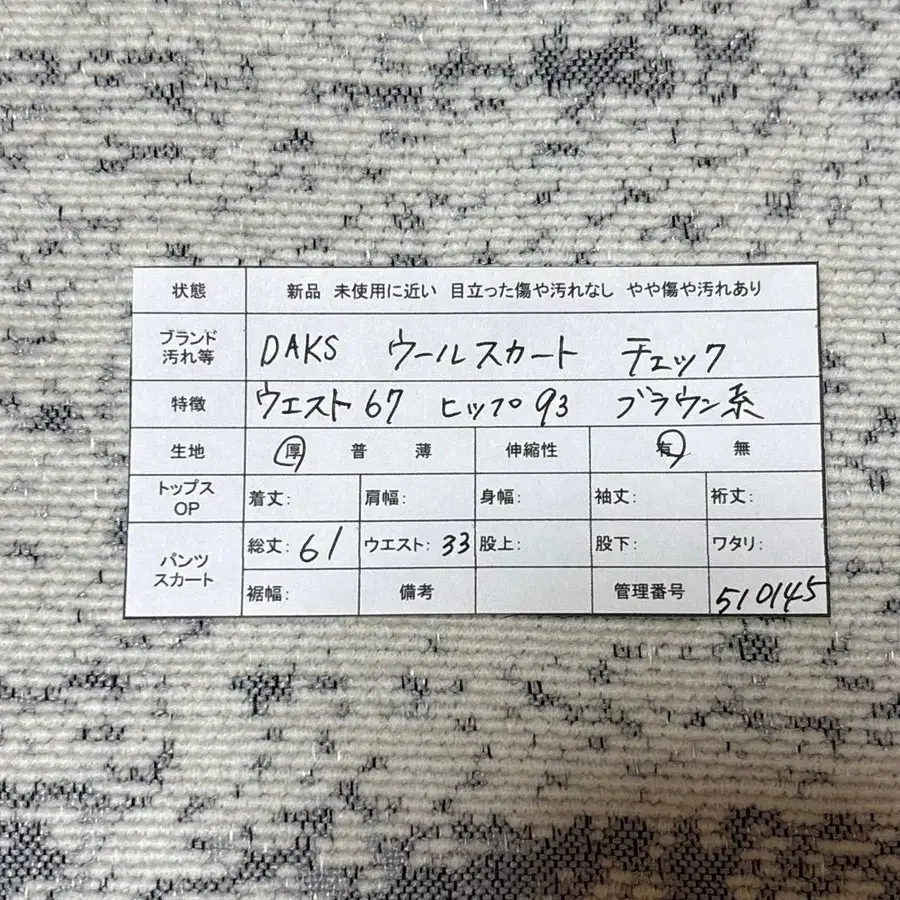 状態 新品 未使用に近い 目立った傷や汚れなし やや傷や汚れあり
ブランド
汚れ等 DAKS ウールスカート チェック
特徴 ウエスト67 ヒップ93 ブラウン系
生地 厚 普 薄 伸縮性 有 無
トップス
OP 着丈: 肩幅: 身幅: 袖丈: 裄丈:
パンツ
スカート 総丈: 61 ウエスト: 33 股上: 股下: ワタリ:
裾幅: 備考 管理番号 510145